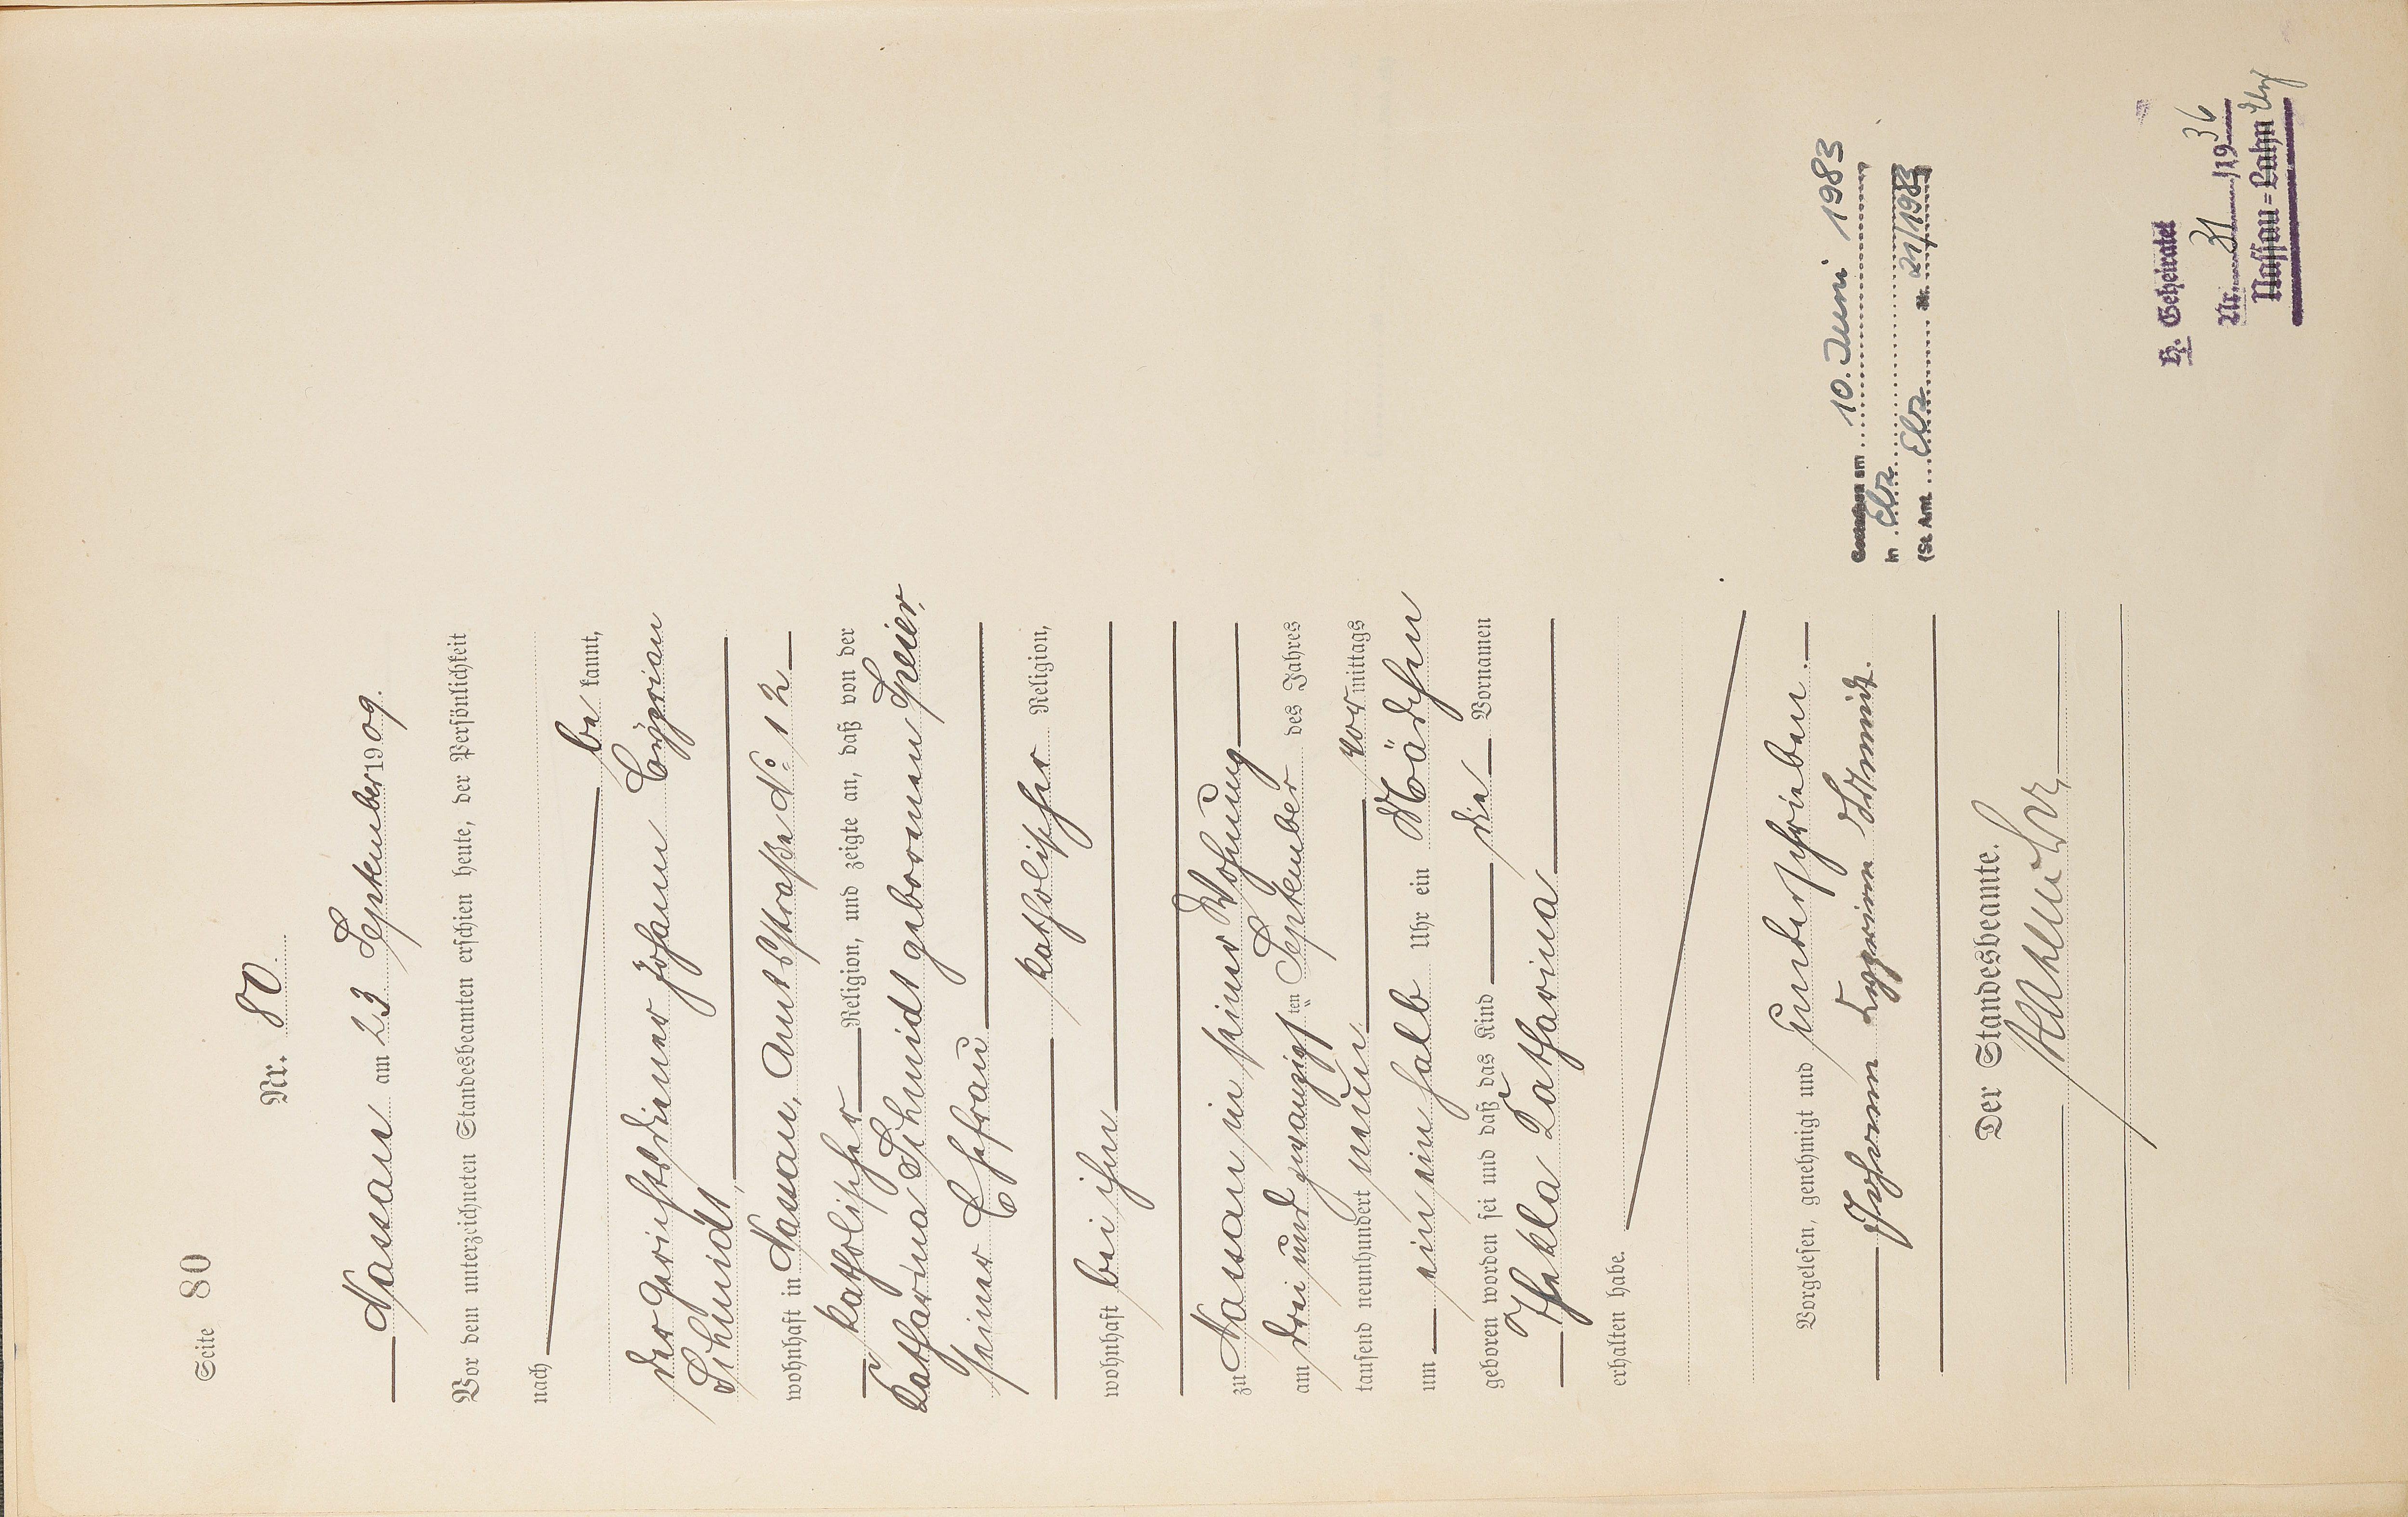 Seite 80
Nr. 80.
Nassau am 23 September 1909.
Vor dem unterzeichneten Standesbeamten erschien heute, der Persönlichkeit
nach
be kannt,
der Gerichtsdiener Johann Cyprian
Schmidt,
wohnhaft in Nassau, Amtsstraße No 12
katholischer Religion, und zeigte an, daß von der
Katharina Schmidt geborenen Speier,
seiner Ehefrau
katholischer Religion,
wohnhaft bei ihm
zu Nassau in seiner Wohnung
am drei und zwanzigsten September des Jahres
tausend neunhundert neun vormittags
um ein einhalb Uhr ein Mädchen
geboren worden sei und daß das Kind die Vornamen
Thekla Katharina
erhalten habe.
Vorgelesen, genehmigt und unterschrieben.
Johann Cyprian Schmidt.
Der Standesbeamte.
Gestorben am 10. Juni 1983
in Elz
(St. Amt Elz Nr. 21/1983
H. Geheiratet
Nr. 31/1936
Nassau=Lahn